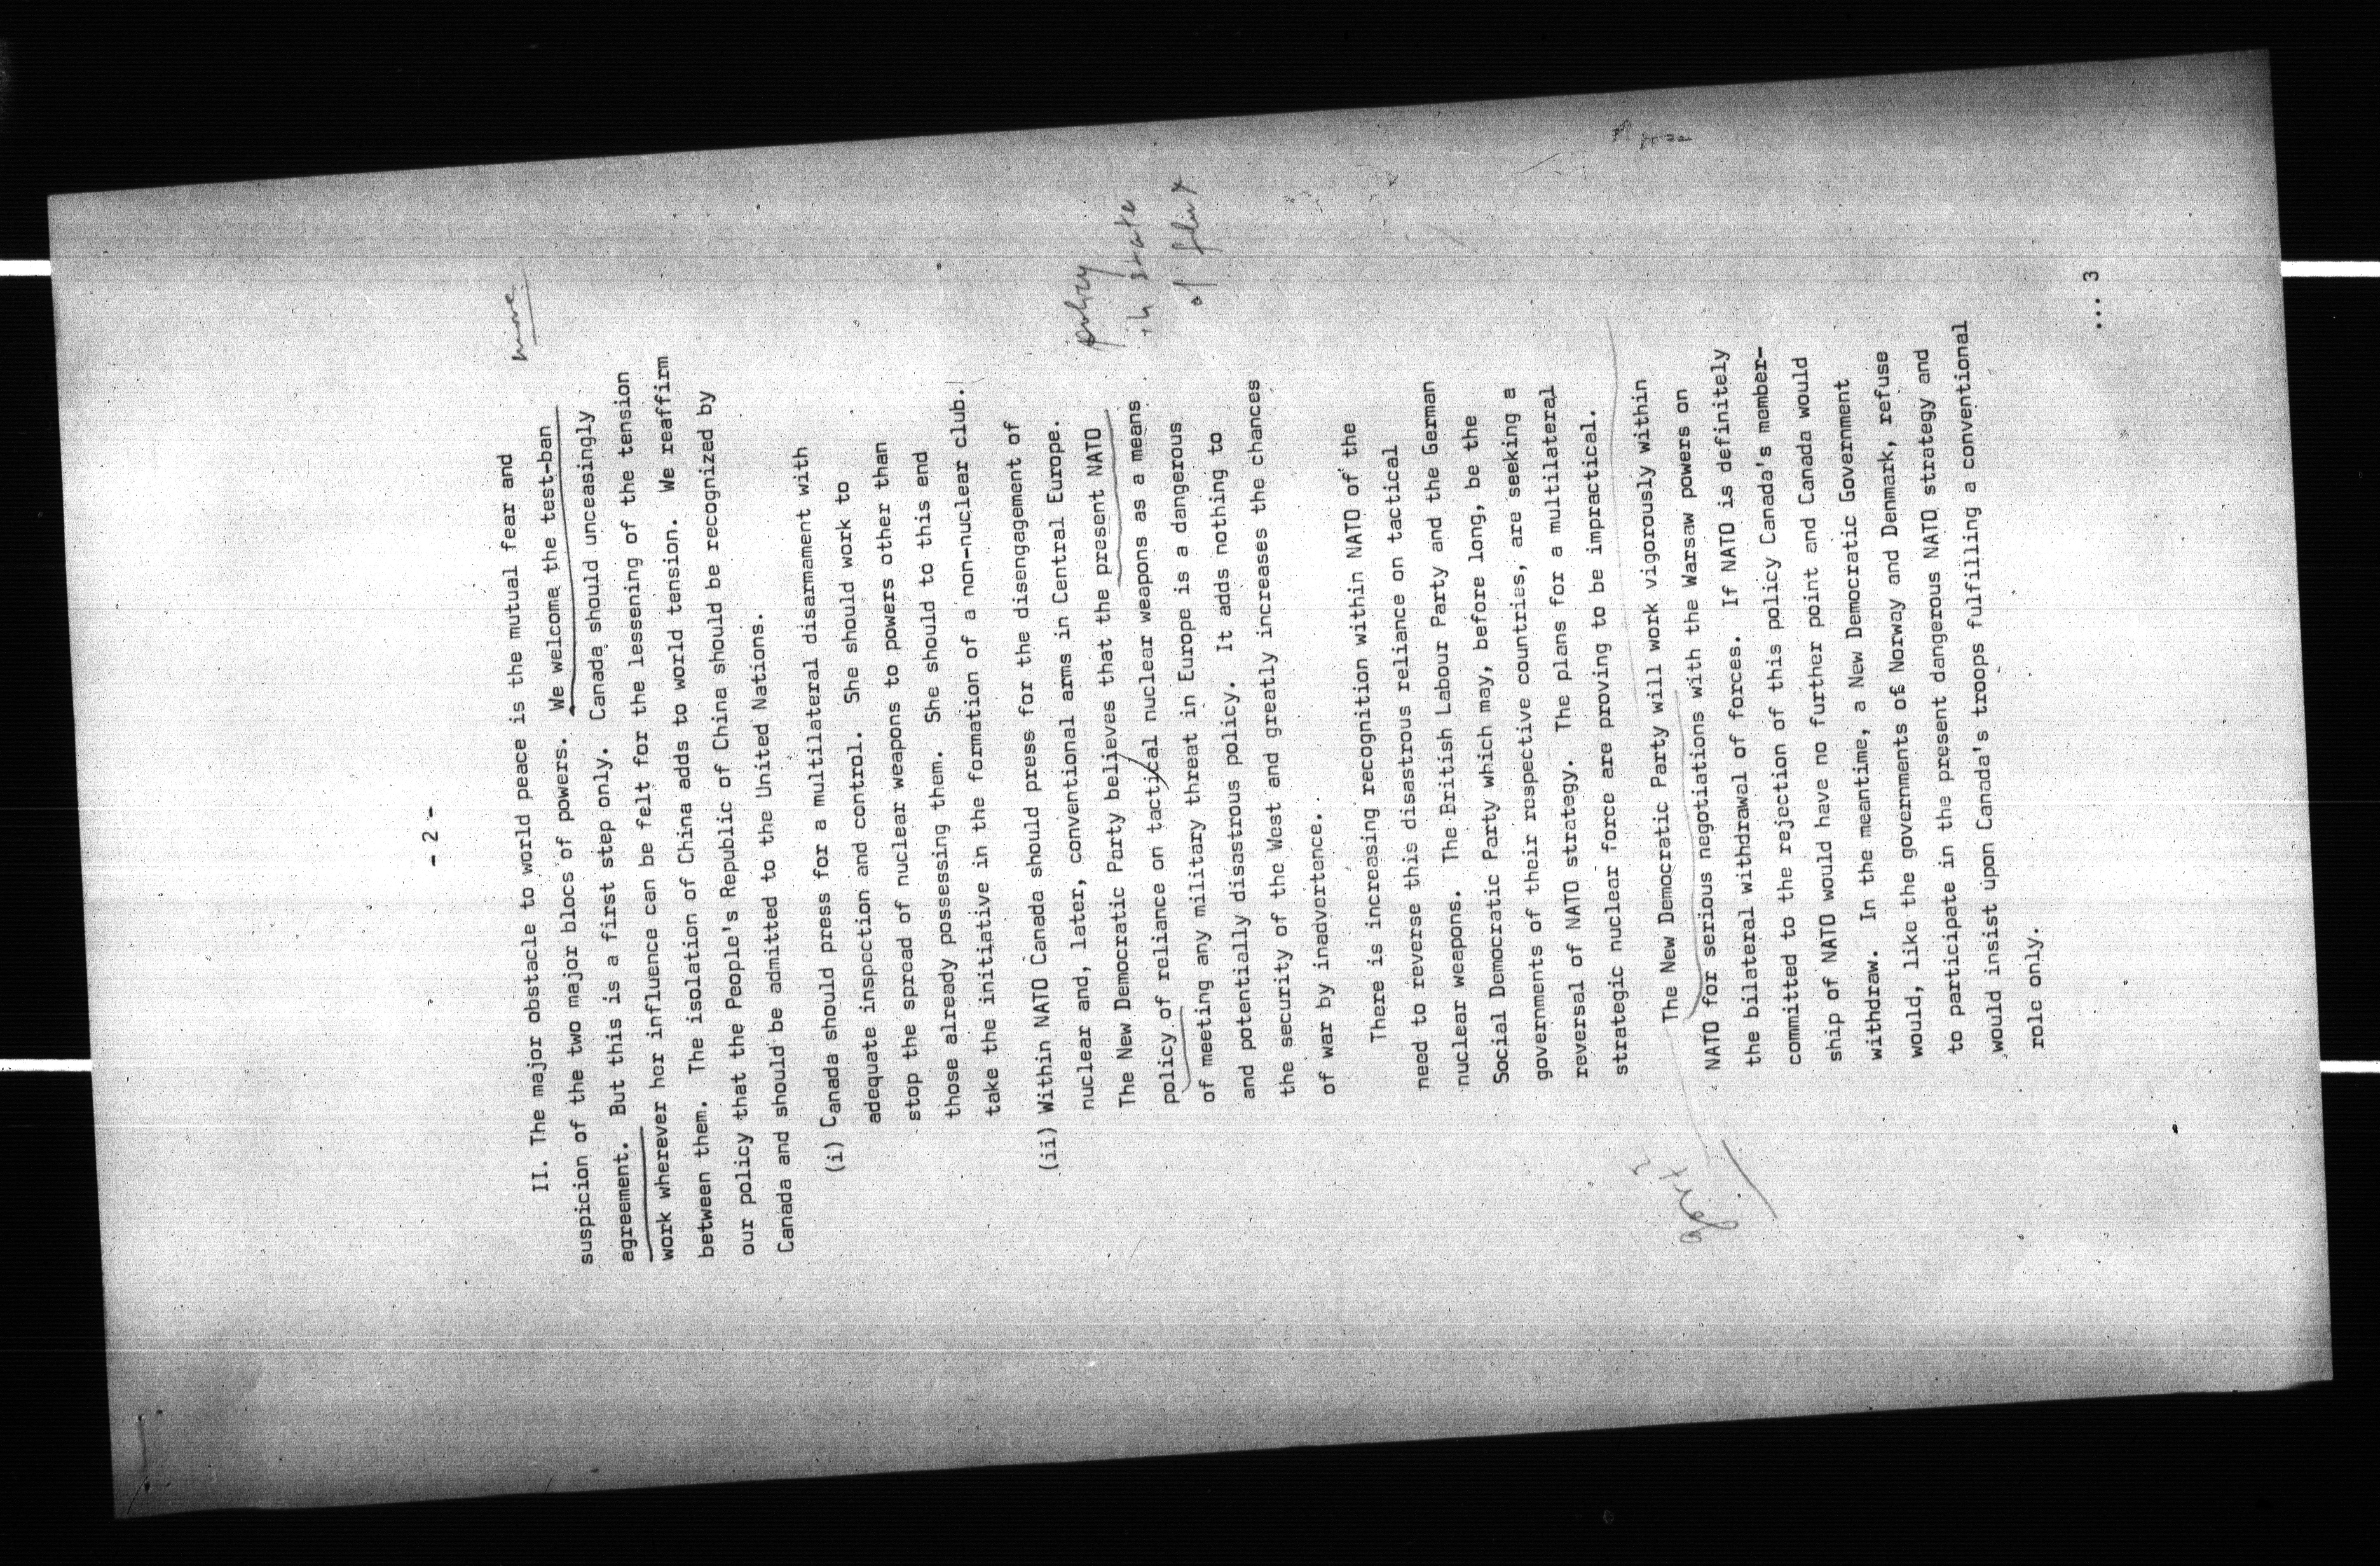 - 2 -
more
II. The major obstacle to world peace is the mutual fear and
suspicion of the two major blocs of powers. We welcome the test-ban
agreement. But this is a first step only. Canada should unceasingly
work wherever her influence can be felt for the lessening of the tension
between them. The isolation of China adds to world tension. We reaffirm
our policy that the People's Republic of China should be recognized by
Canada and should be admitted to the United Nations.
(i) Canada should press for a multilateral disarmament with
adequate inspection and control. She should work to
stop the spread of nuclear weapons to powers other than
those already possessing them. She should to this end
take the initiative in the formation of a non-nuclear club.
(ii) Within NATO Canada should press for the disengagement of
nuclear and, later, conventional arms in Central Europe.
The New Democratic Party believes that the present NATO
policy of reliance on tactical nuclear weapons as a means
of meeting any military threat in Europe is a dangerous
and potentially disastrous policy. It adds nothing to
the security of the West and greatly increases the chances
of war by inadvertence.
policy
in state
of flux
There is increasing recognition within NATO of the
need to reverse this disastrous reliance on tactical
nuclear weapons. The British Labour Party and the German
Social Democratic Party which may, before long, be the
governments of their respective countries, are seeking a
reversal of NATO strategy. The plans for a multilateral
strategic nuclear force are proving to be impractical.
The New Democratic Party will work vigorously within
NATO for serious negotiations with the Warsaw powers on
the bilateral withdrawal of forces. If NATO is definitely
committed to the rejection of this policy Canada's member-
ship of NATO would have no further point and Canada would
withdraw. In the meantime, a New Democratic Government
would, like the governments of Norway and Denmark, refuse
to participate in the present dangerous NATO strategy and
would insist upon Canada's troops fulfilling a conventional
role only.
... 3